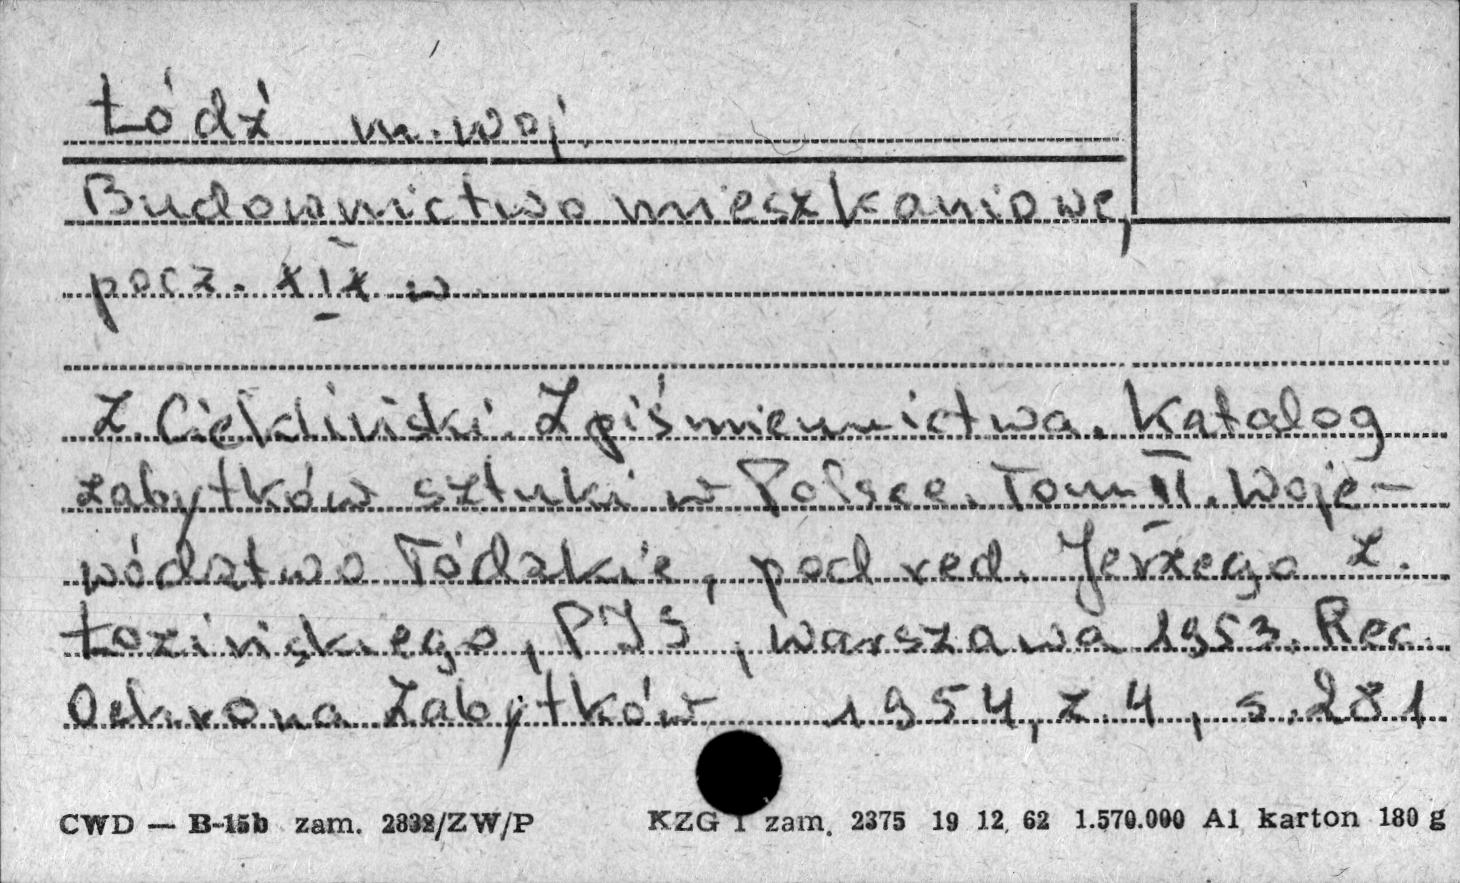 Łódź m. woj.
Budownictwo mieszkaniowe,
pocz. XIX w.
Z. Ciekliński. Z piśmiennictwa. Katalog
zabytków sztuki w Polsce. Tom II. Woje-
wództwo łódzkie, pod red. Jerzego Z.
Łozińskiego, PIS, Warszawa 1953. Rec.
Ochrona Zabytków 1954, z. 4, s. 281
CWD — B-15b zam. 2832/ZW/P KZG 1 zam. 2375 19 12 62 1.570.000 A1 karton 180 g